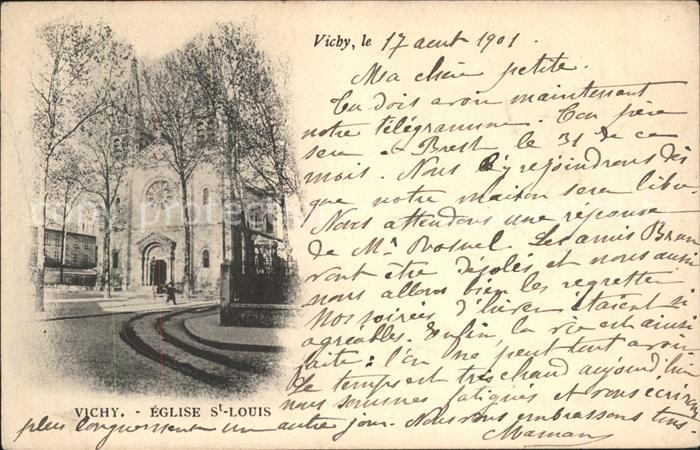 Vichy, le 17 aout 1901.
Ma chère petite.
Tu dois avoir maintenant
notre télégramme. Ton père
sera à Brest le 31 de ce
mois. Nous l'y rejoindrons dès
que notre maison sera libre
Nous attendons une réponse
de Mr Les amis Brun
vont être désolés et nous aussi
nous allons bien les regretter
Nos soirées d'hiver étaient si
agréables. Enfin, la vie est ainsi
faite : l'on ne peut tout avoir.
Le temps est très chaud aujourd'hui
nous sommes fatiguées et vous écrirons
plus longuement un autre jour. Nous vous embrassons tous.
Maman
VICHY. - ÉGLISE St-LOUIS